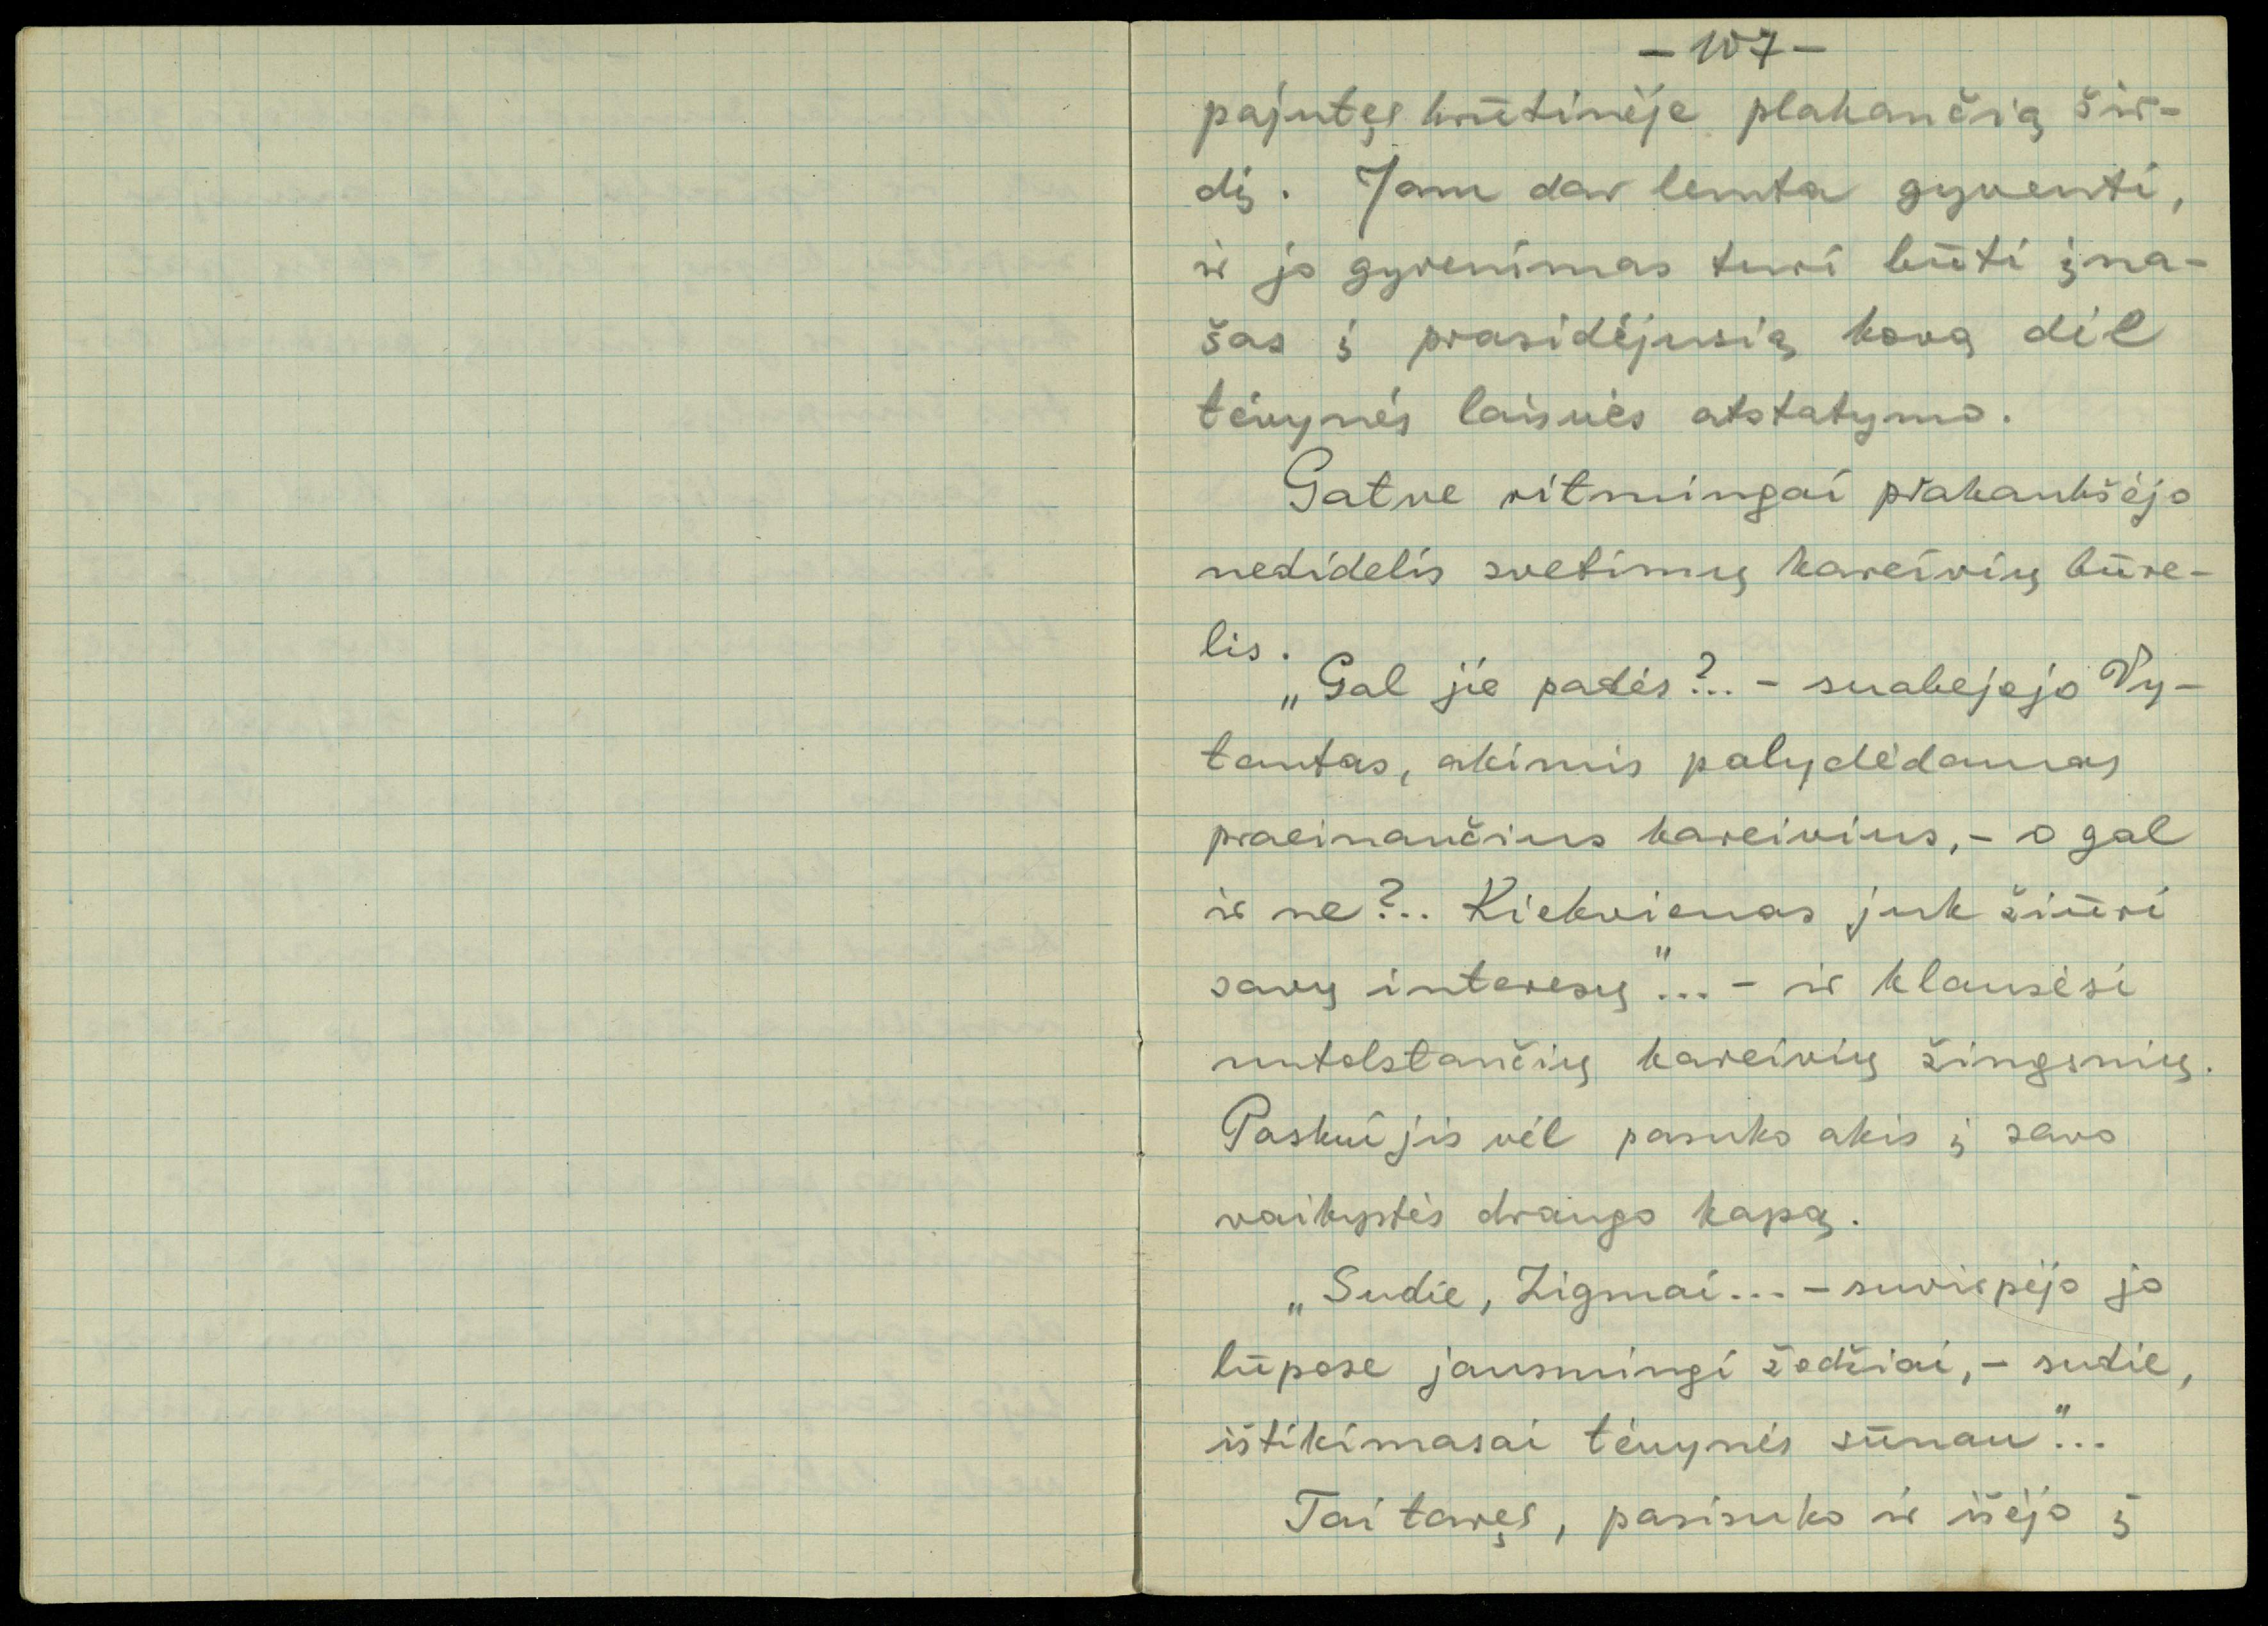 - 107 -
pajutęs krūtinėje plakančią šir-
dį. Jam dar lemta gyventi,
ir jo gyvenimas turi būti įna-
šas į prasidėjusią kovą dėl
tėvynės laisvės atstatymo.
Gatve ritmingai prakaukšėjo
nedidelis svetimų kareivių būre-
lis.
„Gal jie padės?.. - suabejojo Vy-
tautas, akimis palydėdamas
praeinančius kareivius, - o gal
ir ne?.. Kiekvienas juk žiūri
savų interesų"... - ir klausėsi
nutolstančių kareivių žingsnių.
Paskui jis vėl pasuko akis į savo
vaikystės draugo kapą.
„Sudie, Zigmai... - suvirpėjo jo
lūpose jausmingi žodžiai, - sudie,
ištikimasai tėvynės sūnau"...
Tai taręs, pasisuko ir išėjo į